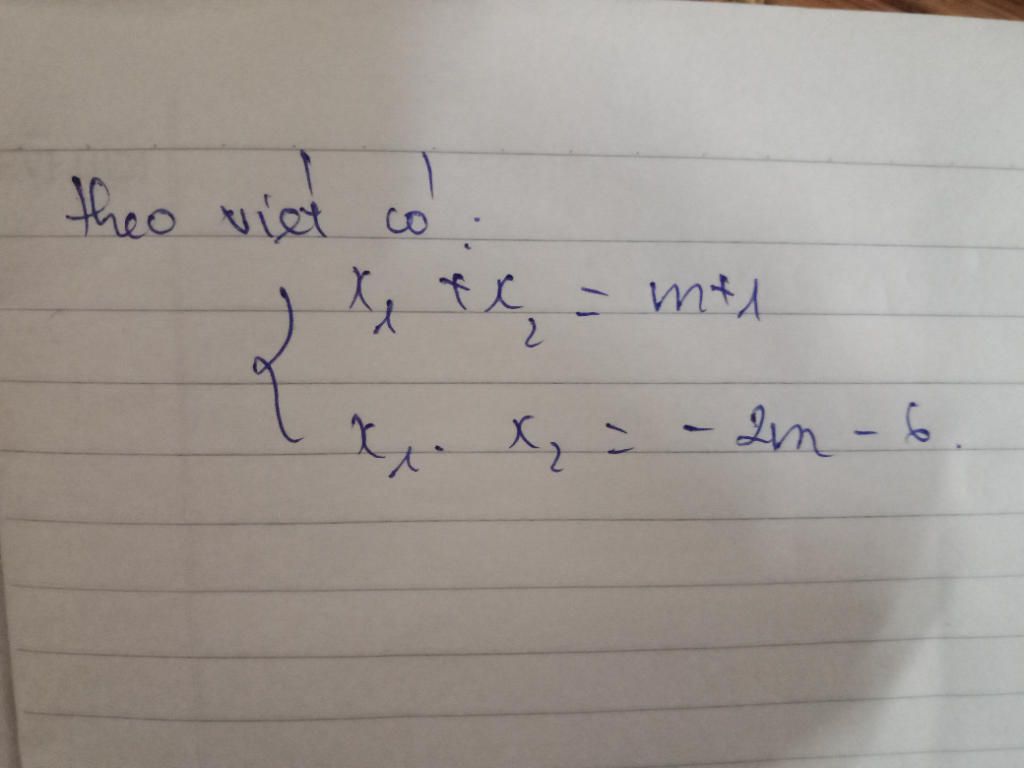 theo viét có :
x₁ + x₂ = m+1
x₁ . x₂ = - 2m - 6.